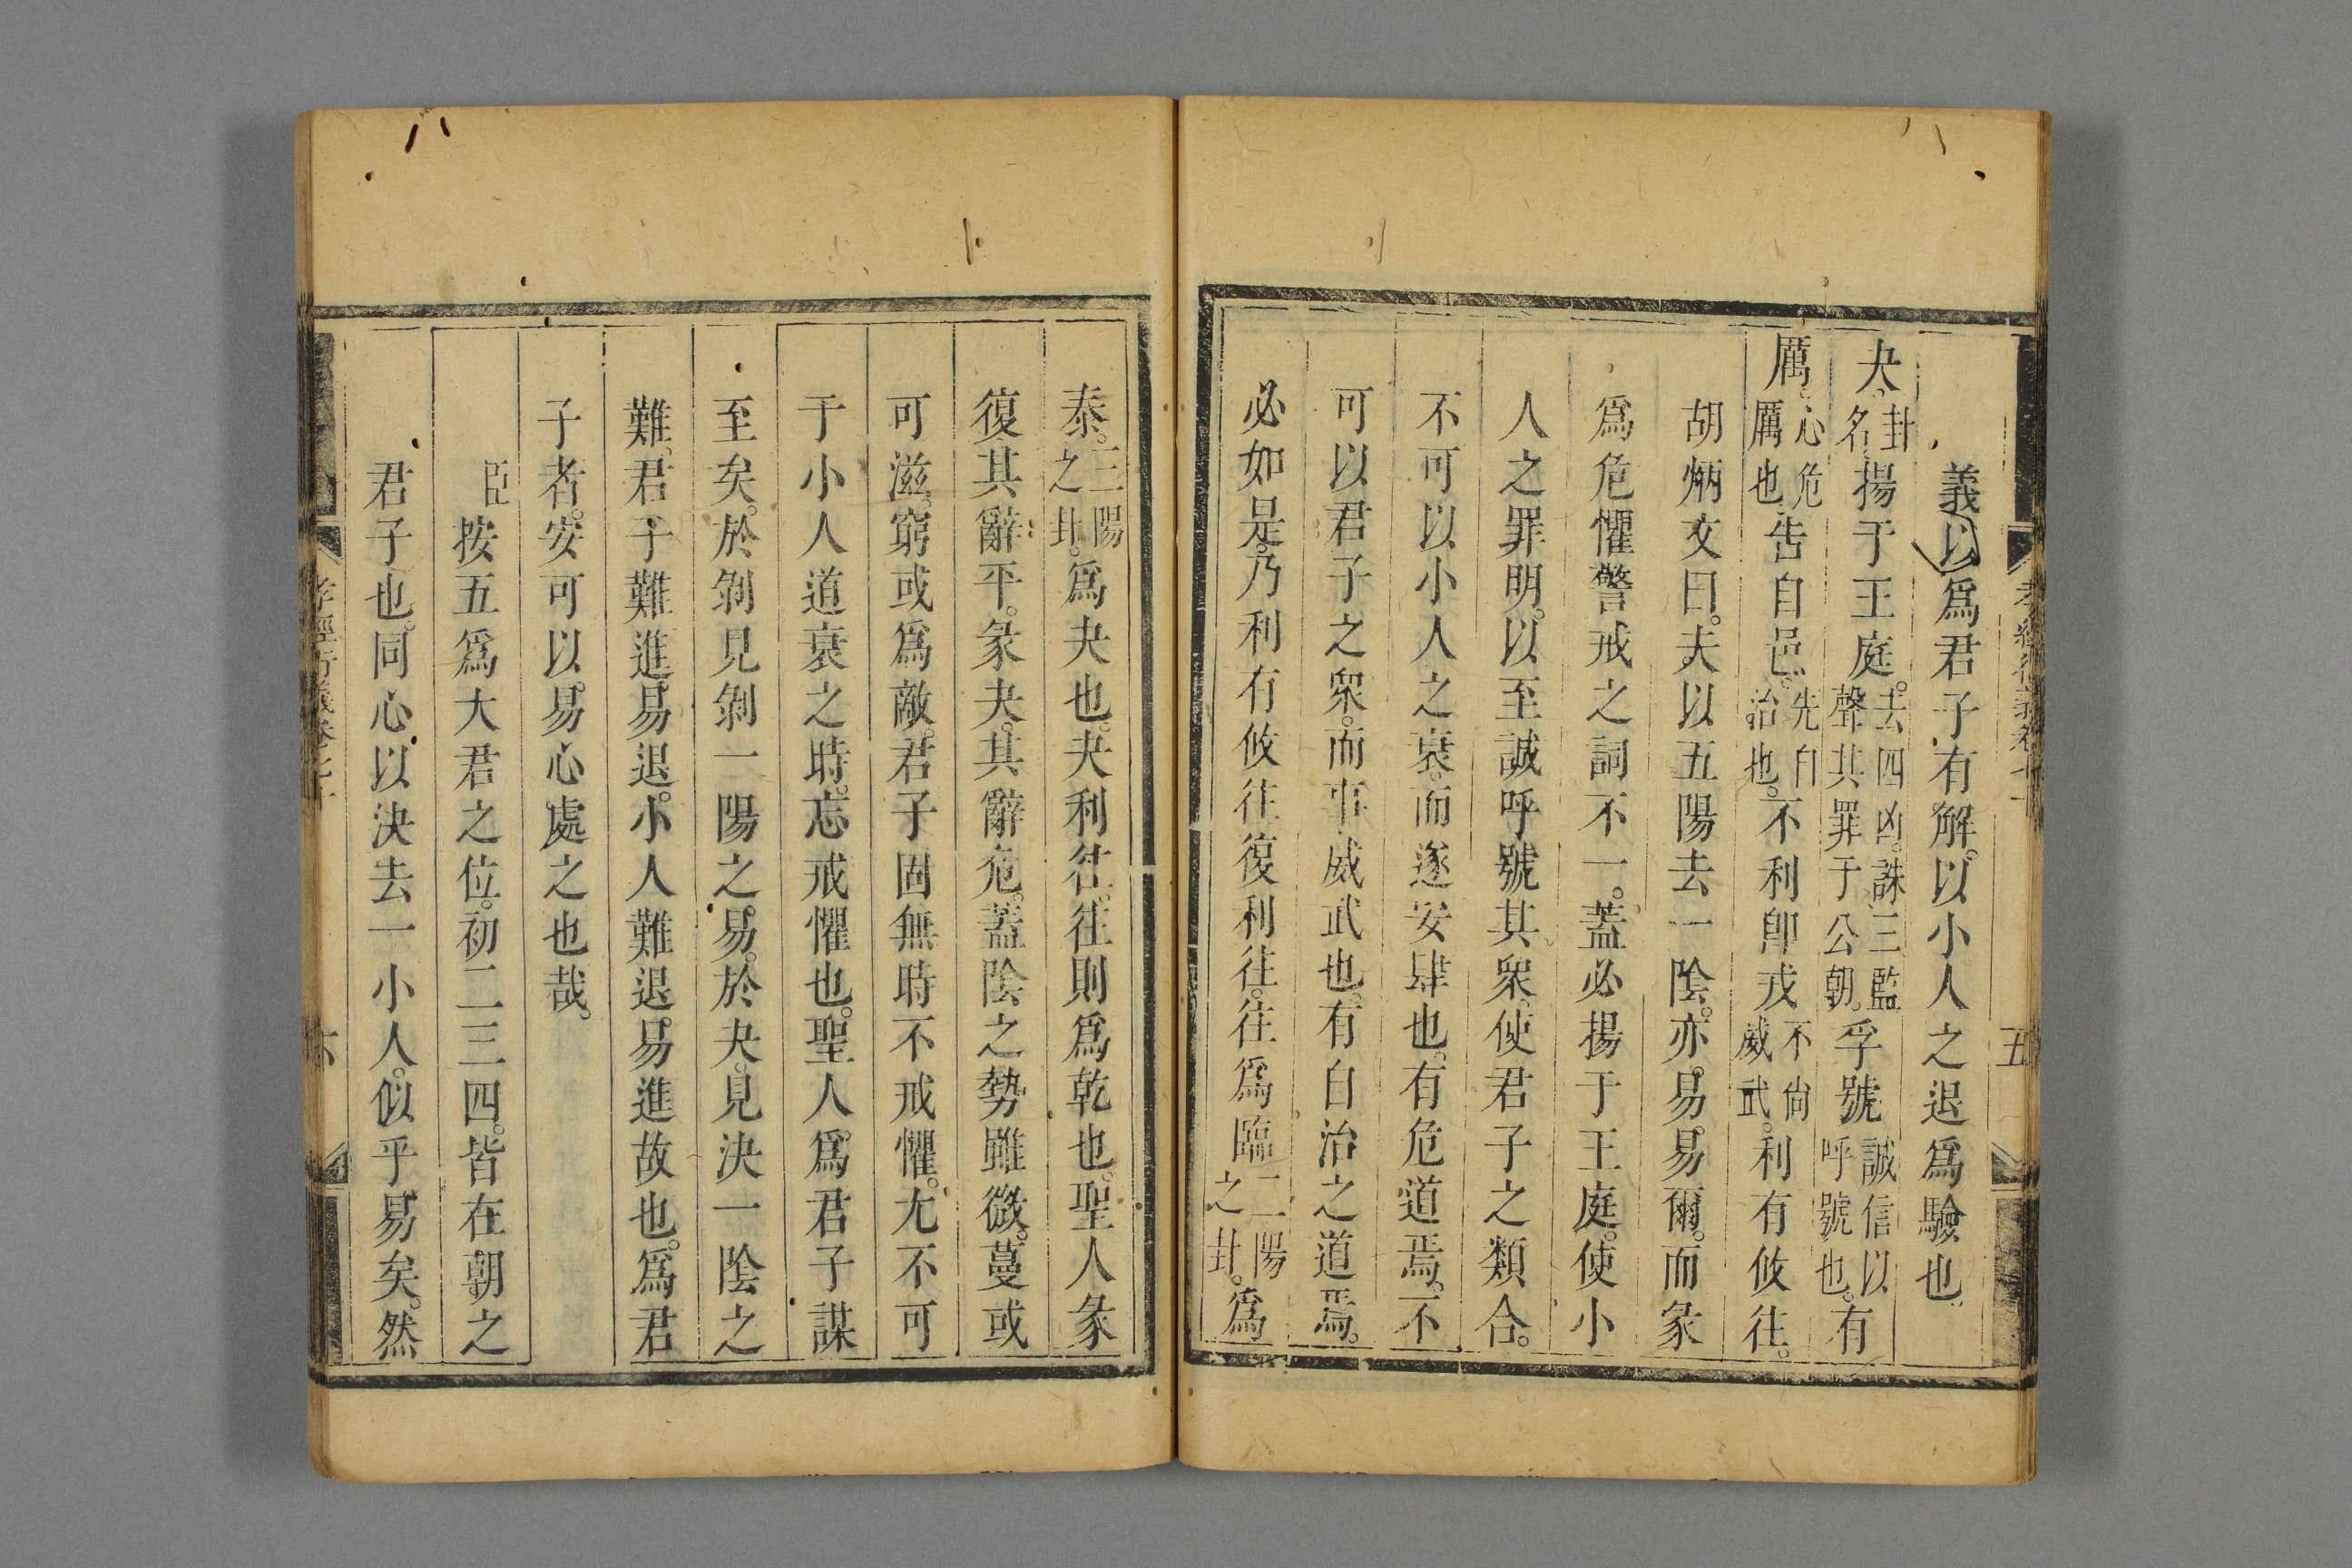 義以爲君子有解以小人之退爲驗也
夬卦名揚于王庭去四凶誅三監聲其罪于公朝孚號誠信以呼號也有
厲心危厲也告自邑先自治也不利卽戎不尙威武利有攸往
胡炳文曰夬以五陽去一陰亦易易爾而彖
爲危懼警戒之詞不一蓋必揚于王庭使小
人之罪明以至誠呼號其衆使君子之類合
不可以小人之衰而遂安肆也有危道焉不
可以君子之衆而事威武也有自治之道焉
必如是乃利有攸往復利往往爲臨二陽之卦爲
泰三陽之卦爲夬也夬利往往則爲乾也聖人彖
復其辭平彖夬其辭危蓋陰之勢雖微蔓或
可滋窮或爲敵君子固無時不戒懼尤不可
于小人道衰之時忘戒懼也聖人爲君子謀
至矣於剝見剝一陽之易於夬見決一陰之
難君子難進易退小人難退易進故也爲君
子者安可以易心處之也哉
臣按五爲大君之位初二三四皆在朝之
君子也同心以決去一小人似乎易矣然
孝經衍義卷七十
五
六